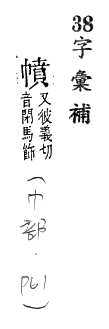 38字彙補
幩又彼義切
音閉馬飾
(巾部·P61)